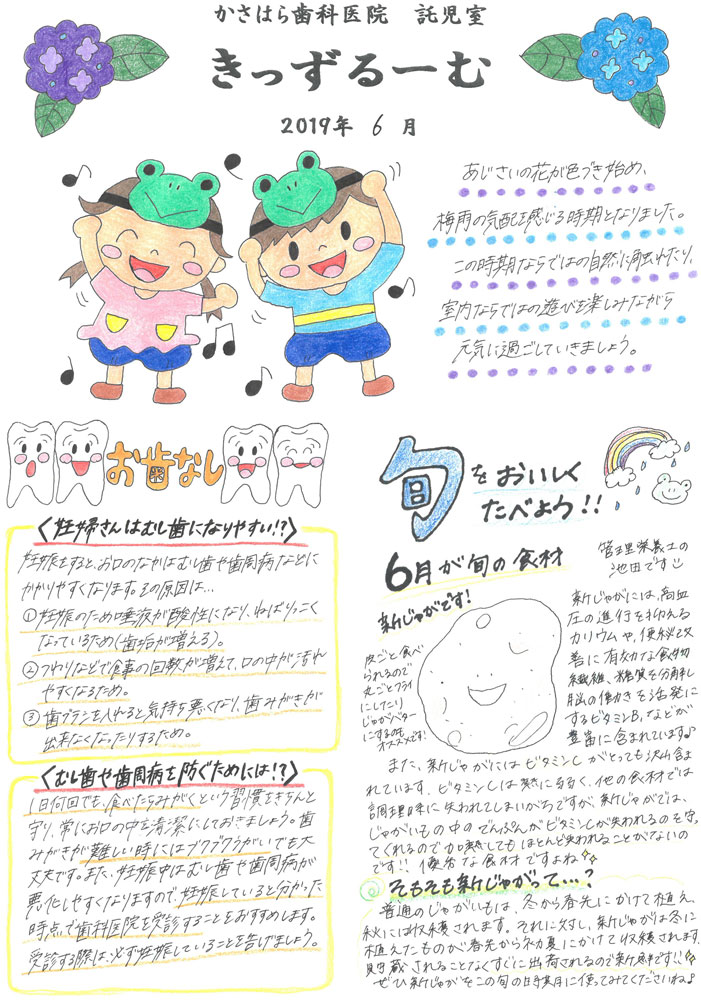 かさはら歯科医院　託児室
きっずるーむ
2019年 6 月
あじさいの花が色づき始め、
梅雨の気配を感じる時期となりました。
この時期ならではの自然に触れたり、
室内ならではの遊びを楽しみながら
元気に過ごしていきましょう。
お歯なし
〈妊婦さんはむし歯になりやすい!?〉
妊娠をすると、お口のなかはむし歯や歯周病などに
かかりやすくなります。その原因は…
①妊娠のため唾液が酸性になり、ねばりっこく
なっているため(歯垢が増える)。
②つわりなどで食事の回数が増えて、口の中が汚れ
やすくなるため。
③歯ブラシを入れると気持ち悪くなり、歯みがきが
出来なくなったりするため。
〈むし歯や歯周病を防ぐためには!?〉
1日何回でも、食べたらみがくという習慣をきちんと
守り、常にお口の中を清潔にしておきましょう。歯
みがきが難しい時にはブクブクうがいでも大
丈夫です。また、妊娠中はむし歯や歯周病が
悪化しやすくなりますので、妊娠していると分かった
時点で歯科医院を受診することをおすすめします。
受診する際は、必ず妊娠していることを告げましょう。
旬をおいしく
たべよう!!
6月が旬の食材
管理栄養士の
池田です
新じゃがです!
皮ごと食べ
られるので
丸ごとフライ
にしたり
じゃがバター
にするのも
オススメです!
新じゃがには、高血
圧の進行を抑える
カリウムや、便秘改
善に有効な食物
繊維、糖質を分解し
脳の働きを活発に
するビタミンB₁などが
豊富に含まれています♪
また、新じゃがにはビタミンCがとっても沢山含ま
れています。ビタミンCは熱に弱く、他の食材では
調理時に失われてしまいがちですが、新じゃがでは、
じゃがいもの中のでんぷんがビタミンCが失われるのを守っ
てくれるので加熱してもほとんど失われることがないの
です!! 優秀な食材ですよね
そもそも新じゃがって…?
普通のじゃがいもは、冬から春先にかけて植え、
秋には収穫されます。それに対し、新じゃがは冬に
植えたものが春先から初夏にかけて収穫されます。
貯蔵されることなくすぐに出荷されるので新鮮です!!
ぜひ新じゃがをこの旬の時期に使ってみてくださいね♪